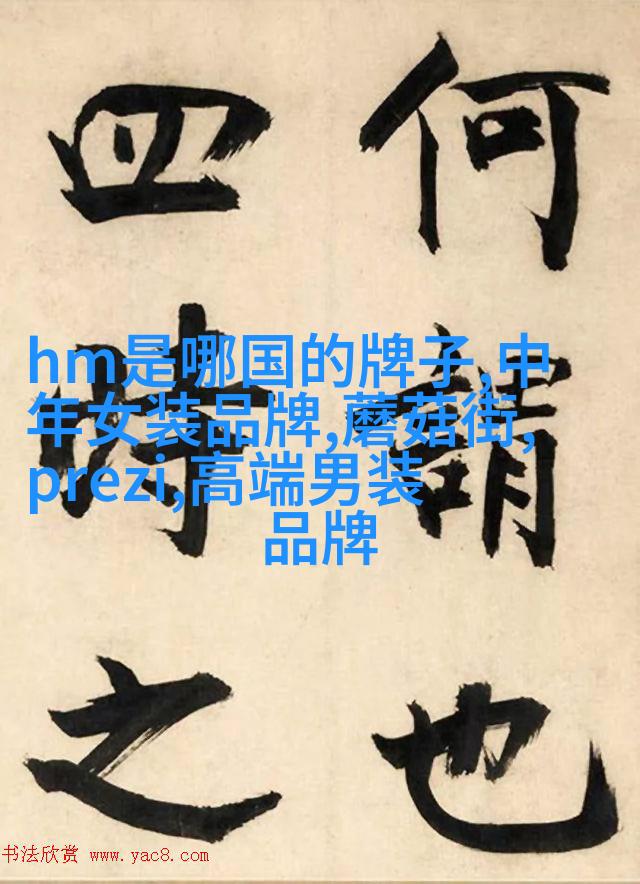 何謂也
四時之
hm是哪国的牌子,中
年女装品牌,蘑菇街,
prezi,高端男装
品牌
书法欣赏 www.yac8.com